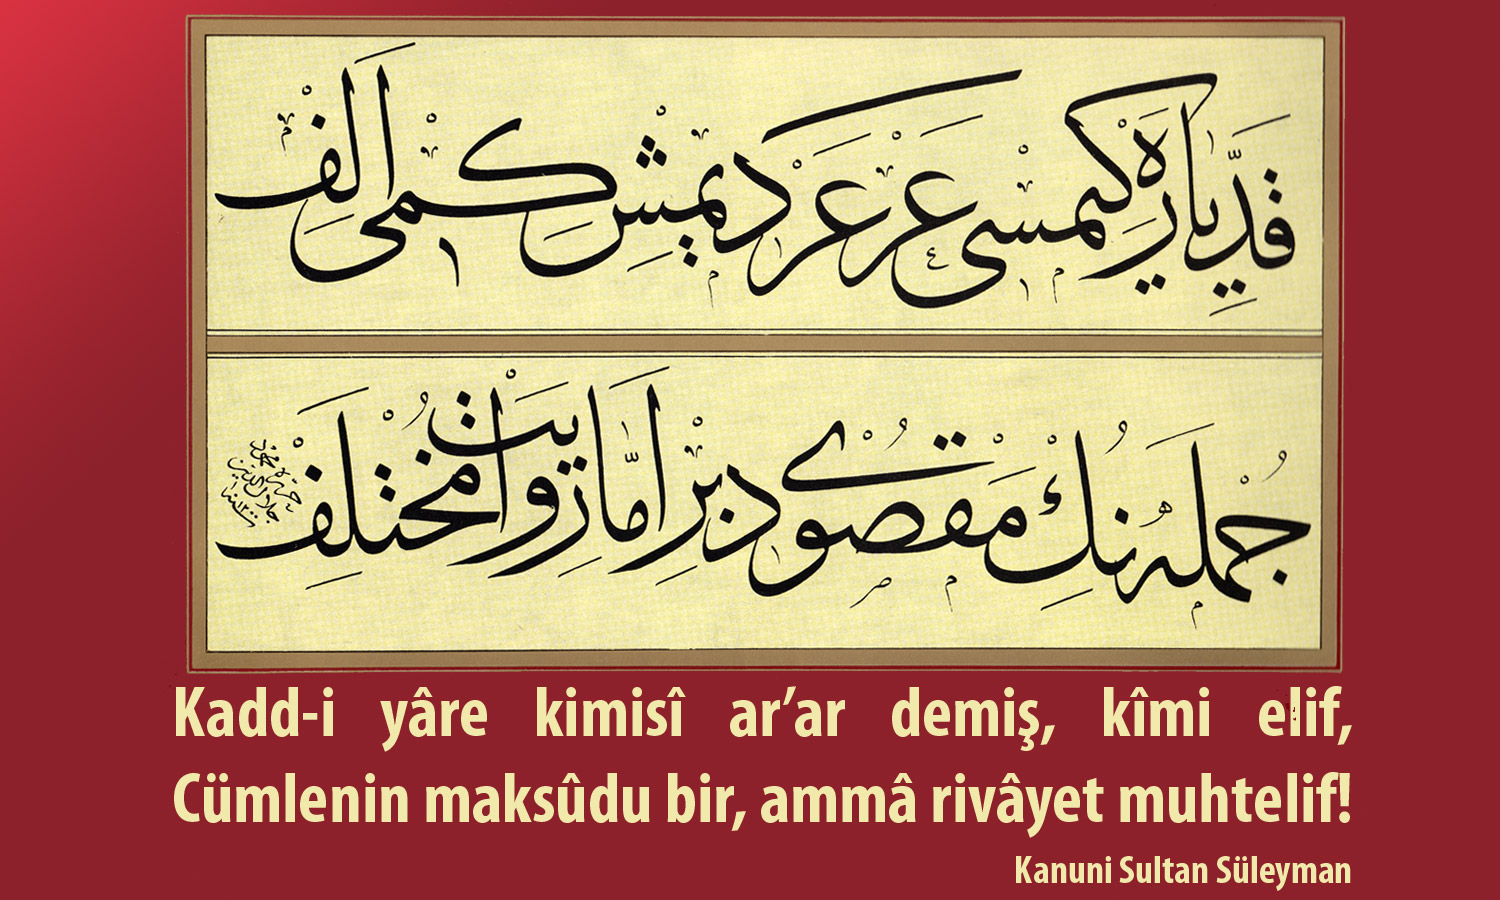 قَدِّ يَارَه كِمِسِى عَرْعَرْ دِيمِشْ كِمِى اَلِفْ
جُمْلَه نُكْ مَقْصُودِى بِرْ اَمَّا رِوَايَتْ مُخْتَلِفْ
Kadd-i yâre kimisî ar’ar demiş, kîmi elif,
Cümlenin maksûdu bir, ammâ rivâyet muhtelif!
Kanuni Sultan Süleyman